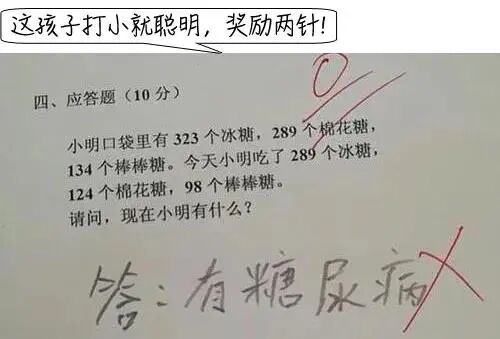 这孩子打小就聪明，奖励两针!
0
四、应答题（10 分）
小明口袋里有 323 个冰糖，289 个棉花糖，
134 个棒棒糖。今天小明吃了 289 个冰糖，
124 个棉花糖，98 个棒棒糖。
请问，现在小明有什么？
答：有糖尿病